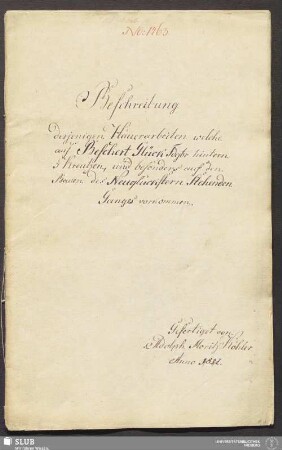 No. 1763
Beschreibung
derjenigen Häuerarbeiten welche
auf Beschert Glück Fdgr. hintern
3 Kreutzen, und besonders auf den
Neuglückstern Stehenden
Ganges vorkommen.
Gefertiget von
Adolph Moritz Köhler
Anno
SLUB
Wir führen Wissen.
UNIVERSITÄTSBIBLIOTHEK
FREIBERG